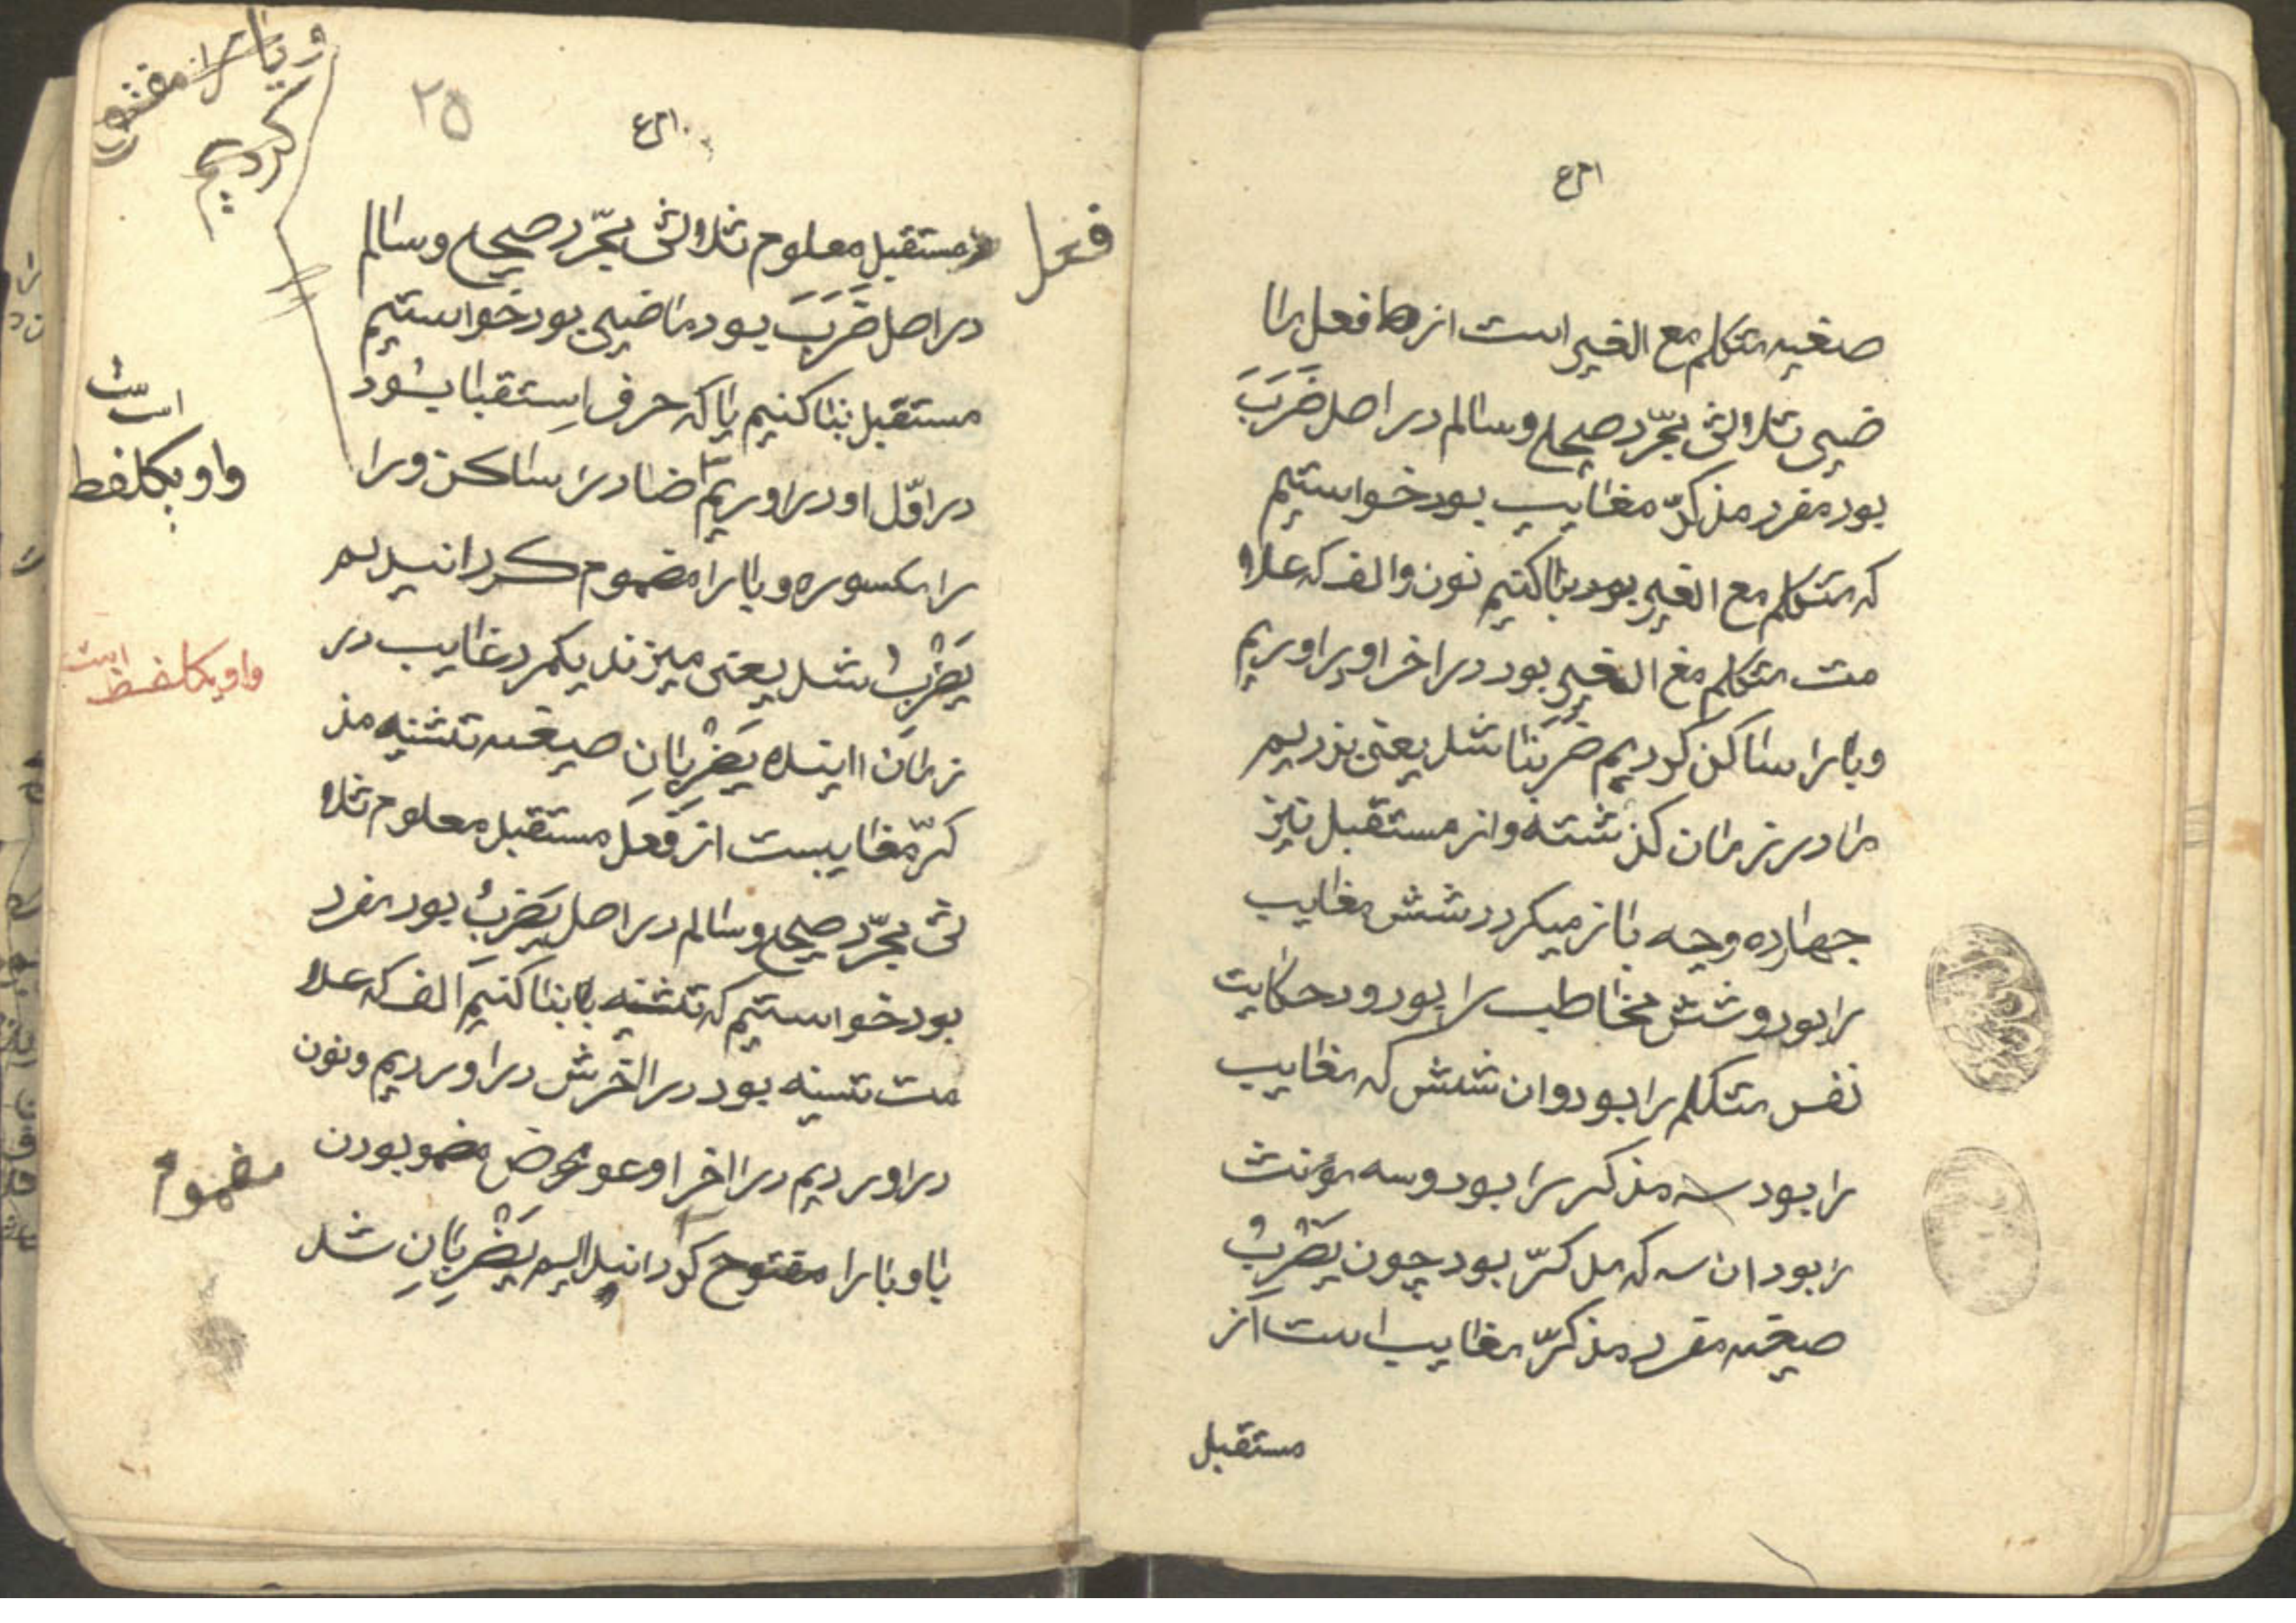 صغیه متکلم مع الغیر است از فعل ما
ضیی ثلاوثی مجرّد صیحح وسالم در اصل ضَرَبَ
بود مفرد مذکرّ مغایب بود خواستیم
که متکلم مع الغیر بود بنا کنیم نون والف که علاو
مت متکلم مع الغیر بود در اخر او براوریم
وبا را ساکن کردیم ضَرَبنا شد یعنی بزدیم
ما در زمان گذشته واز مستقبل نیز
چهارده وجه باز میکردد شش مغایب
را بود و شش مخاطب را بود ودو حکایت
نفس متکلم را بود وان شش که مغایب
را بود سه مذکر را بود وسه مؤنث
را بود ان سه که مذکرّ بود چون یَضْرِبُ
صیغه مفرد مذکرّ مغایب است از
مستقبل
۲۵
فعل
مستقبل معلوم ثلاوثی مجرّد صیحح وسالم
در اصل ضَرَبَ بود ماضیی بود خواستیم
مستقبل بنا کنیم یا که حرف استقبا بشود
در اوّل او در اوریم ضاد را ساکن ورا
را مکسوره وبا را مضموم کردانیدیم
یَضْرِبُ شد یعنی میزند یکمرد غایب در
زمان اینده یَضْرِبانِ صیغه تثنیه مذ
کرّ مغایبست از فَعَلَ مستقبل معلوم ثلا
ثی مجرّد صیحح وسالم در اصل یَضْرِبُ بود مفرد
بود خواستیم که تثنیه بنا کنیم الف که علا
مت تسنیه بود در اخرش در اوردیم ونون
در اوردیم در اخر او عوض بودن
با وبا را مفتوح کردانیدیم یَضْرِبانِ شد
وبا را مفتوح
کردیم
است
واو یکلفظ
واو یکلفظ است
مضموم